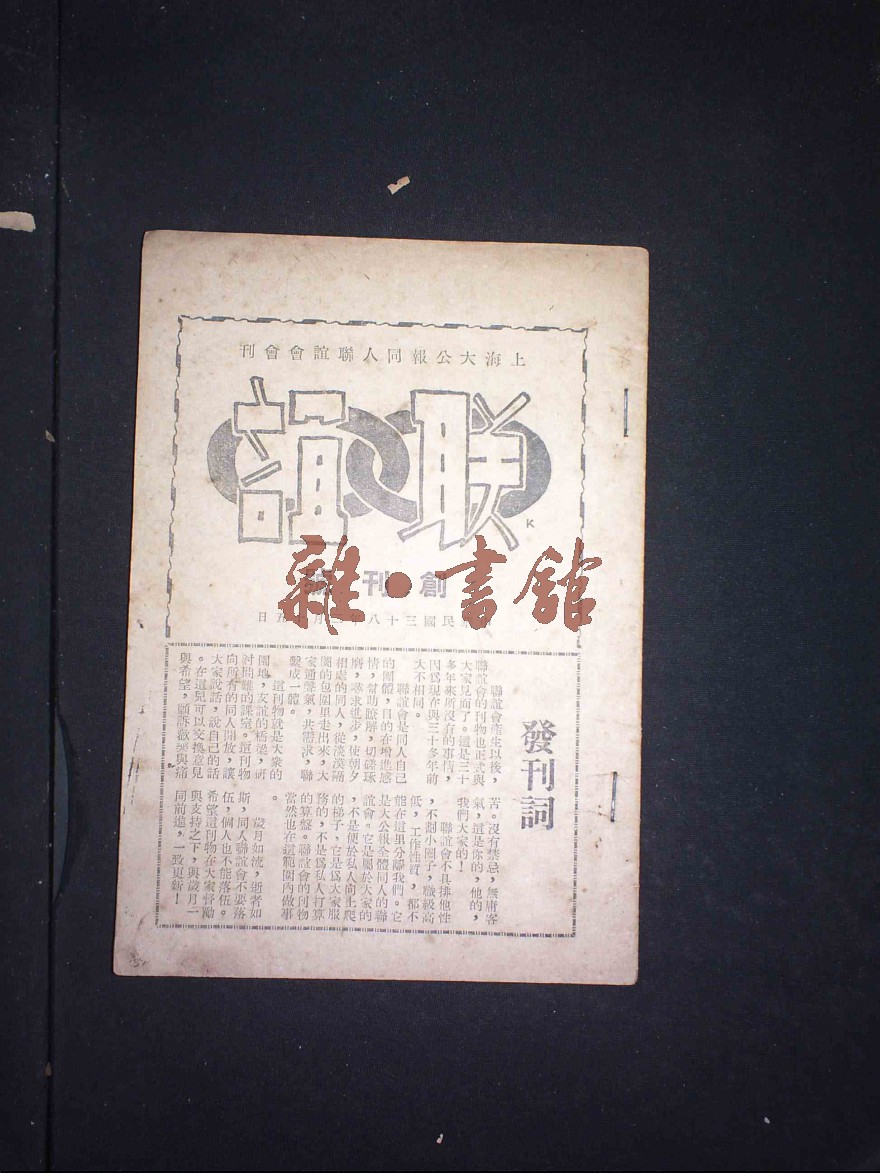 上海大公報同人聯誼會會刊
联誼
K
創刊
民國三十八年 月 五日
雜·書館
發刊詞
聯誼會產生以後，
聯誼會的刊物也正式與
大家見面了。這是三十
多年來所沒有的事情，
因爲現在與三十多年前
大不相同。
聯誼會是同人自己
的團體，目的在增進感
情，幫助瞭解，切磋琢
磨，尋求進步，使朝夕
相處的同人，從淡漠隔
閡的包圍里走出來，大
家通聲氣，共需求，聯
繫成一體。
這刊物就是大衆的
園地，友誼的橋樑，研
討問題的課室。這刊物
向所有的同人開放，讓
大家說話，說自己的話
。在這兒可以交換意見
與希望，傾訴歡樂與痛
苦。沒有禁忌，無庸客
氣，這是你的，他的，
我們大家的！
聯誼會不具排他性
，不劃小圈子，職級高
低，工作性質，都不
能在這里分離我們。它
是大公報全體同人的聯
誼會。它是屬於大家的
，不是便於私人向上爬
的梯子，它是爲大家服
務的，不是爲私人打算
的算盤。聯誼會的刊物
當然也在這範圍內做事
。
歲月如流，逝者如
斯，同人聯誼會不要落
伍，個人也不能落伍。
希望這刊物在大家督勵
與支持之下，與歲月一
同前進，一致更新！